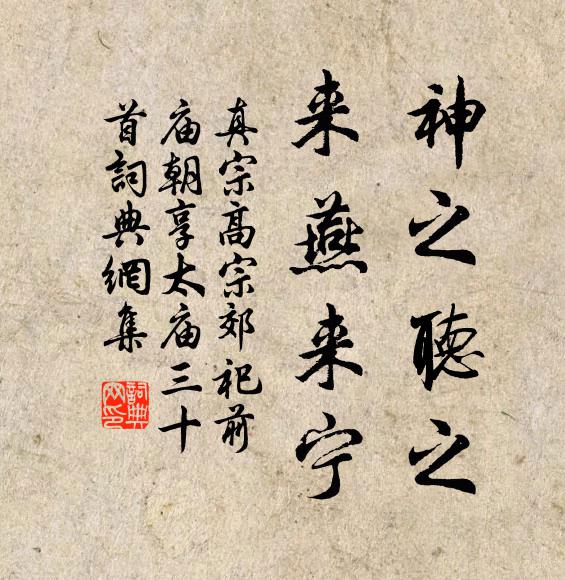 神之聽之
来燕来宁
真宗高宗郊祀前
庙朝享太庙三十
首詞典網集
詞典
网印